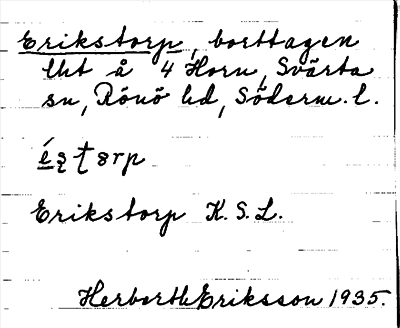 Erikstorp, borttagen
lht å 4 Horn, Svärta
sn, Rönö hd, Söderm. l.
Erikstorp K. S. L.
Herberth Eriksson 1935.